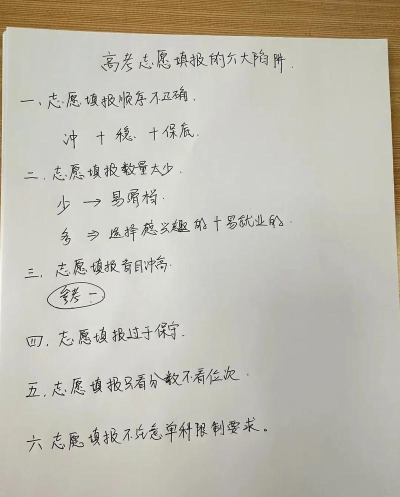 高考志愿填报的六大陷阱.
一、志愿填报顺序不正确.
冲 + 稳 + 保底.
二、志愿填报数量太少.
少 → 易滑档.
多 ⇒ 选择感兴趣的 + 易就业的.
三、志愿填报盲目冲高.
参考一
四、志愿填报过于保守.
五、志愿填报只看分数不看位次.
六、志愿填报不注意单科限制要求。